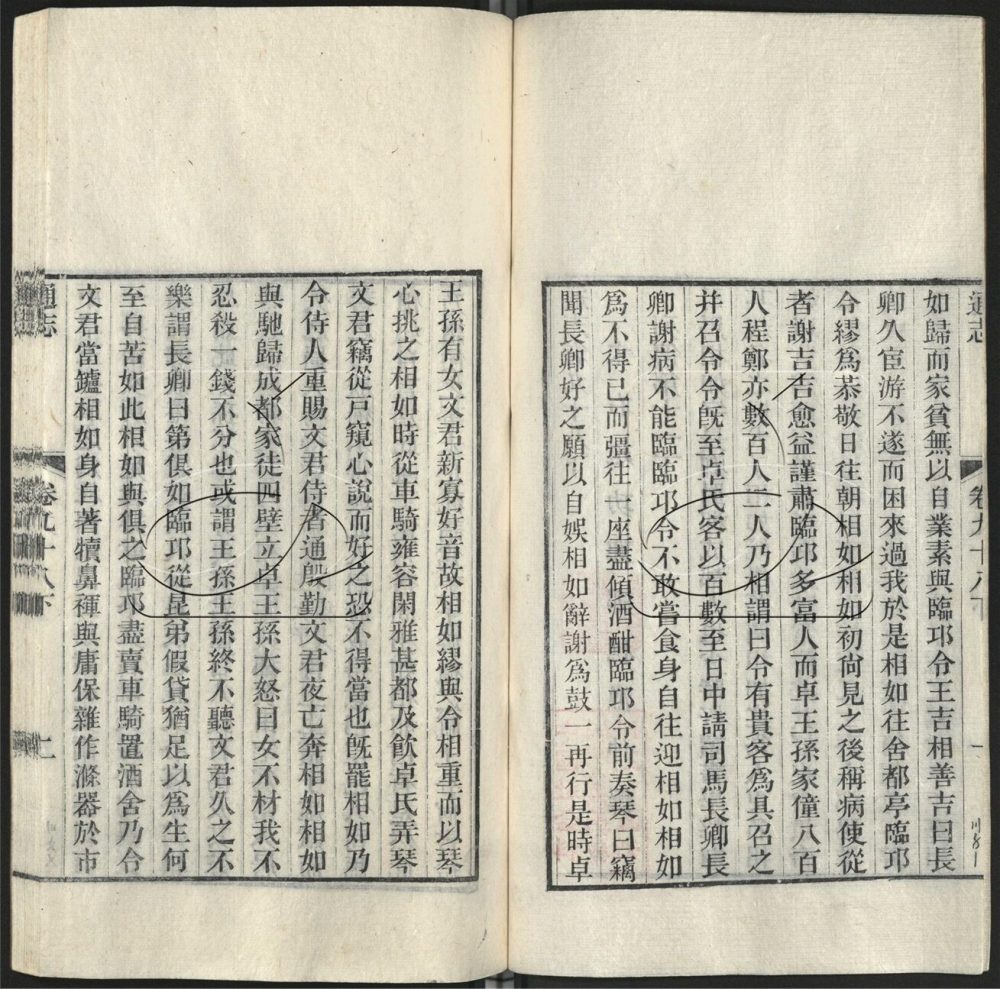 如歸而家貧無以自業素與臨邛令王吉相善吉曰長
卿久宦游不遂而困來過我於是相如往舍都亭臨邛
令繆爲恭敬日往朝相如相如初尚見之後稱病使從
者謝吉吉愈益謹肅臨邛多富人而卓王孫家僮八百
人程鄭亦數百人二人乃相謂曰令有貴客爲具召之
并召令令旣至卓氏客以百數至日中請司馬長卿長
卿謝病不能臨臨邛令不敢嘗食身自往迎相如相如
爲不得已而彊往一座盡傾酒酣臨邛令前奏琴曰竊
聞長卿好之願以自娛相如辭謝爲鼓一再行是時卓
通志
卷九十八下
王孫有女文君新寡好音故相如繆與令相重而以琴
心挑之相如時從車騎雍容閑雅甚都及飲卓氏弄琴
文君竊從戸窺心說而好之恐不得當也旣罷相如乃
令侍人重賜文君侍者通殷勤文君夜亡奔相如相如
與馳歸成都家徒四壁立卓王孫大怒曰女不材我不
忍殺一錢不分也或謂王孫王孫終不聽文君久之不
樂謂長卿曰第俱如臨邛從昆弟假貸猶足以爲生何
至自苦如此相如與俱之臨邛盡賣車騎置酒舍乃令
文君當鑪相如身自著犢鼻褌與庸保雜作滌器於市
通志
卷九十八下
七